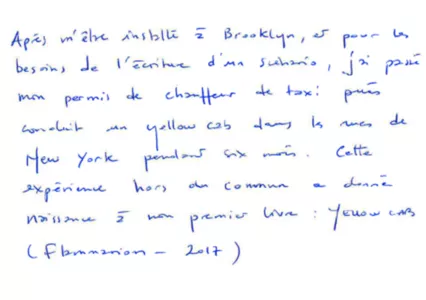 Après m'être installé à Brooklyn, et pour les
besoins de l'écriture d'un scénario, j'ai passé
mon permis de chauffeur de taxi puis
conduit un yellow cab dans les rues de
New York pendant six mois. Cette
expérience hors du commun a donné
naissance à mon premier livre : YELLOW CAB
(Flammarion - 2017)